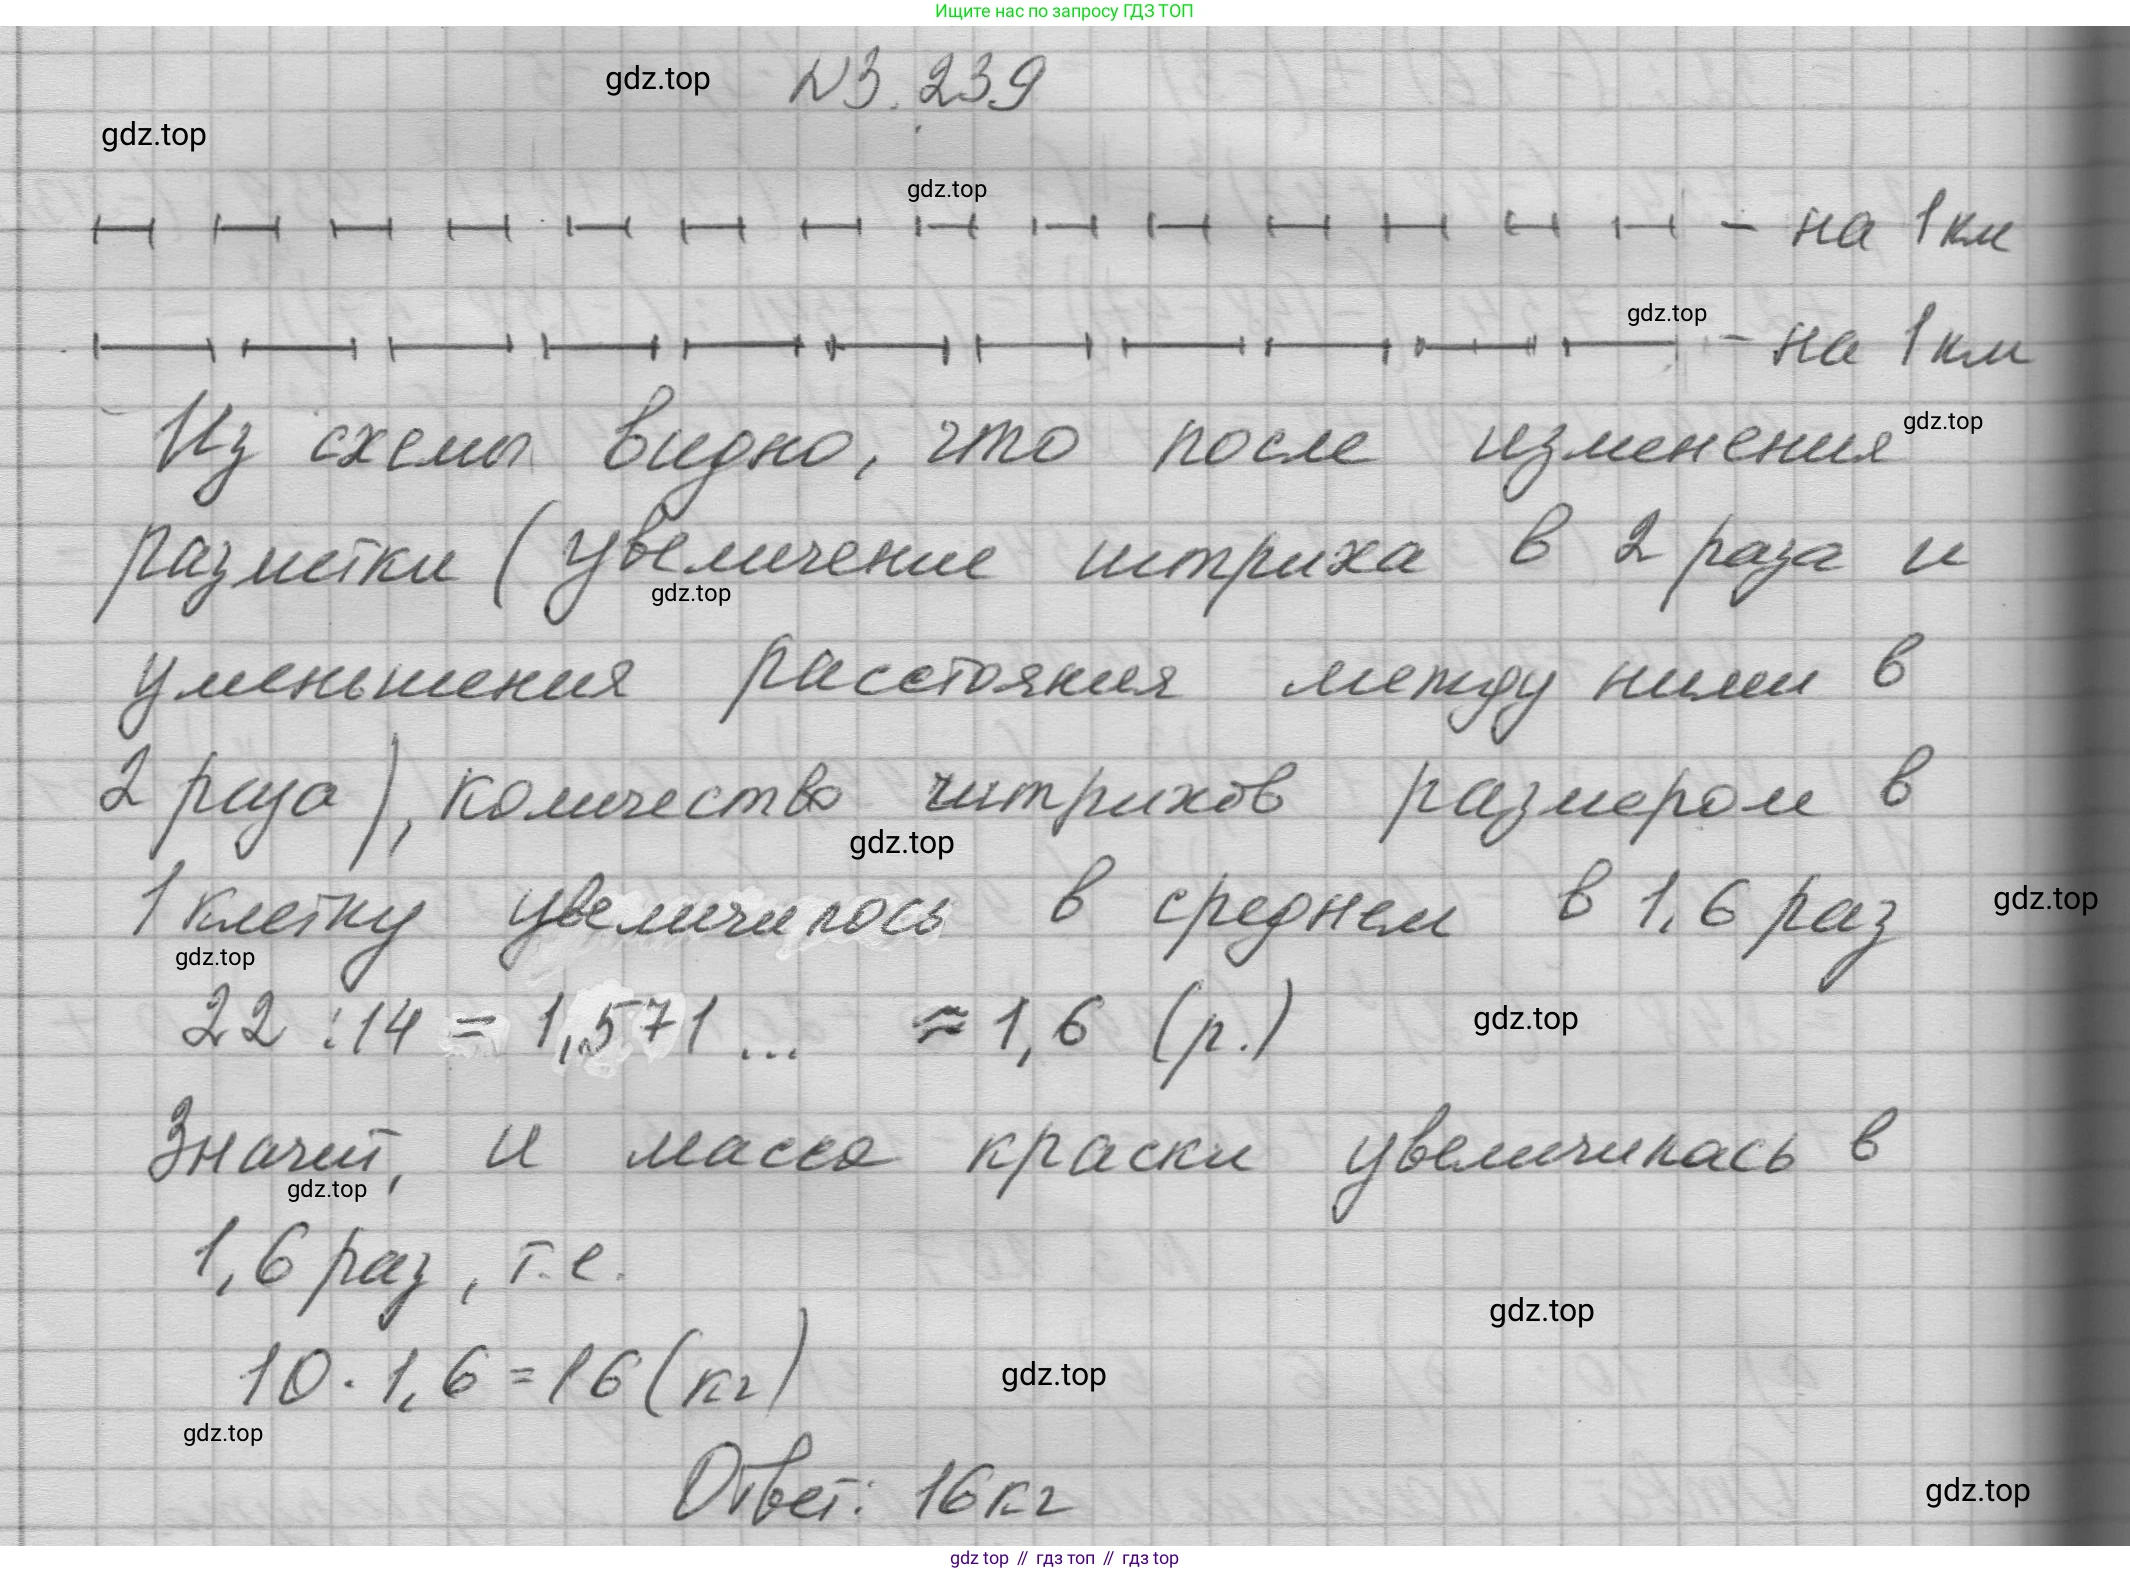 Ищите нас по запросу ГДЗ ТОП
gdz.top N3.239
gdz.top
gdz.top
- на 1 км
gdz.top
- на 1 км
gdz.top
Из схемы видно, что после изменения
разметки (увеличение штриха в 2 раза и
gdz.top
уменьшения расстояния между ними в
2 раза), количество штрихов размером в
gdz.top
1 клетку увеличилось в среднем в 1,6 раз
gdz.top
gdz.top
22 : 14 = 1,571 ... ≈ 1,6 (р.)
gdz.top
Значит, и масса краски увеличилась в
gdz.top
1,6 раз, т.е.
gdz.top
10 · 1,6 = 16 (кг)
gdz.top
gdz.top
Ответ: 16 кг
gdz.top
gdz top // гдз топ // гдз top